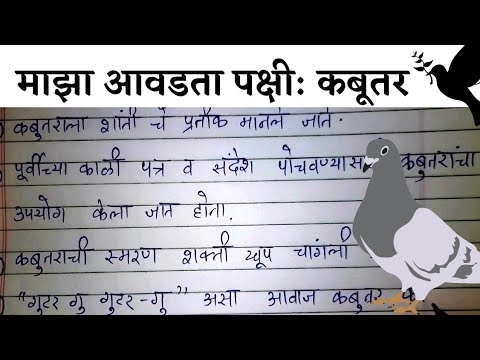 माझा आवडता पक्षीः कबूतर
) कबुतराला शांती चे प्रतीक मानले जाते.
) पूर्वीच्या काळी पत्र व संदेश पोचवण्यास कबुतरांचा
उपयोग केला जात होता.
) कबुतराची स्मरण शक्ती खूप चांगली
) "गुटर गु गुटर-गू" असा आवाज कबुतर